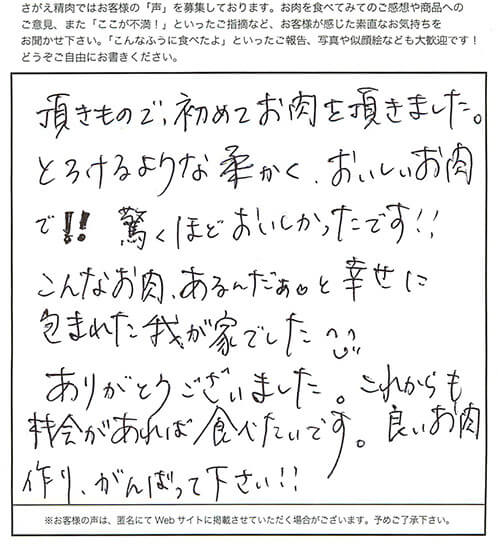 さがえ精肉ではお客様の「声」を募集しております。お肉を食べてみてのご感想や商品への
ご意見、また「ここが不満！」といったご指摘など、お客様が感じた素直なお気持ちを
お聞かせ下さい。「こんなふうに食べたよ」といったご報告、写真や似顔絵なども大歓迎です！
どうぞご自由にお書きください。
頂きもので、初めてお肉を頂きました。
とろけるような柔かく、おいしいお肉
で!! 驚くほどおいしかったです!!
こんなお肉、あるんだぁ。と幸せに
包まれた我が家でした
ありがとうございました。これからも
機会があれば食べたいです。良いお肉
作り、がんばって下さい!!
※お客様の声は、匿名にてWebサイトに掲載させていただく場合がございます。予めご了承下さい。